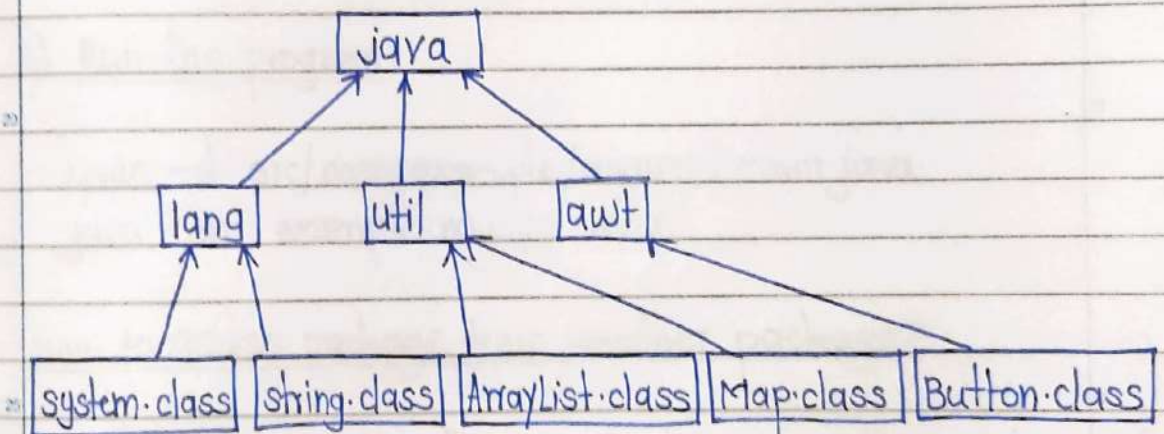 java
lang util awt
system.class string.class ArrayList.class Map.class Button.class